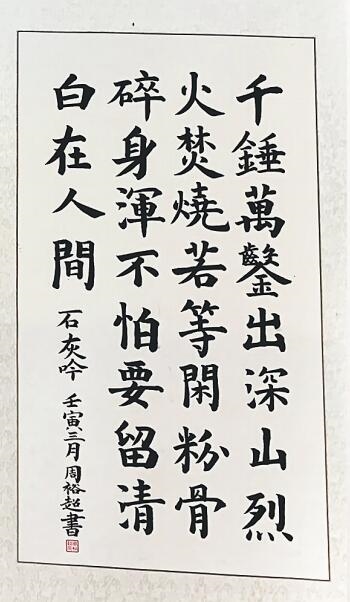 千錘萬鑿出深山烈
火焚燒若等閑粉骨
碎身渾不怕要留清
白在人間
石灰吟 壬寅三月周裕超書